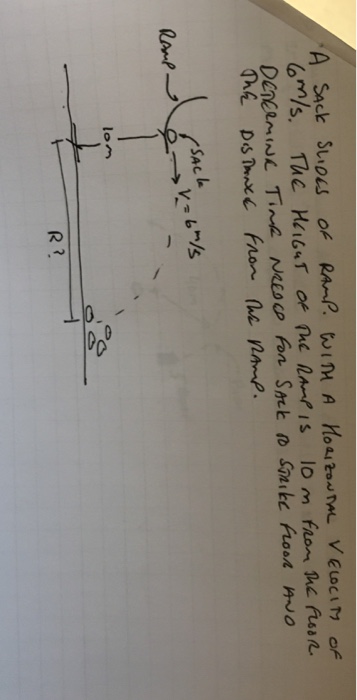 A SACK SLIDES OF RAMP. WITH A HORIZONTAL VELOCITY OF
6m/s. THE HEIGHT OF THE RAMP IS 10 m FROM THE FLOOR.
DETERMINE TIME NEEDED FOR SACK TO STRIKE FLOOR AND
THE DISTANCE FROM THE RAMP.
RAMP
SACK
V = 6 m/s
10m
R?